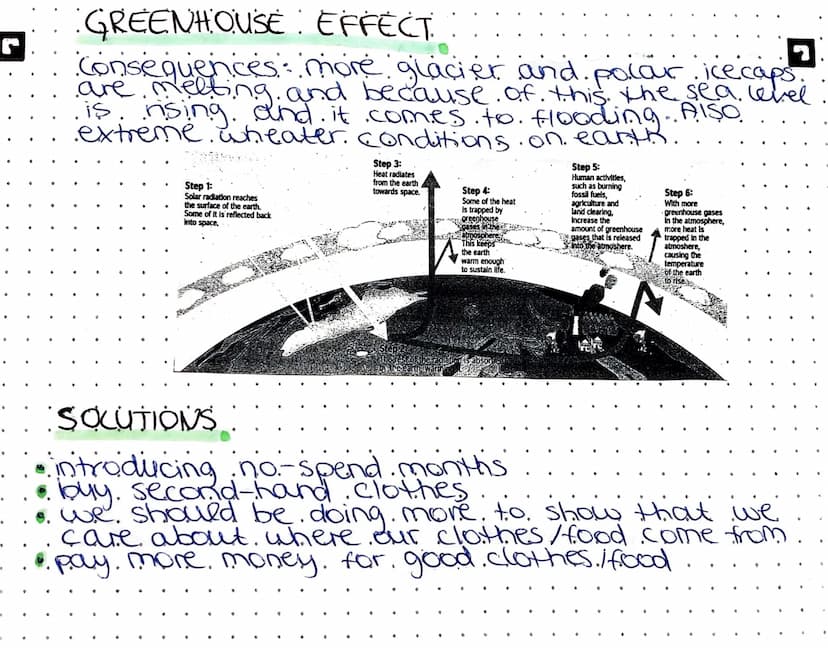 GREENHOUSE EFFECT
Consequences: more glacier and polar icecaps
are melting and because of this the sea level
is rising and it comes to flooding. Also
extreme wheater conditions on earth
Step 1:
Solar radiation reaches
the surface of the earth.
Some of it is reflected back
into space.
Step 3:
Heat radiates
from the earth
towards space.
Step 4:
Some of the heat
is trapped by
greenhouse
gases in the
atmosphere.
This keeps
the earth
warm enough
to sustain life.
Step 5:
Human activities,
such as burning
fossil fuels,
agriculture and
land clearing,
increase the
amount of greenhouse
gases that is released
into the atmoshere.
Step 6:
With more
greenhouse gases
in the atmoshere,
more heat is
trapped in the
atmoshere,
causing the
temperature
of the earth
to rise.
Step
SOLUTIONS
introducing no-spend months
buy second-hand clothes
we should be doing more to show that we
care about where our clothes/food come from
pay more money for good clothes/food